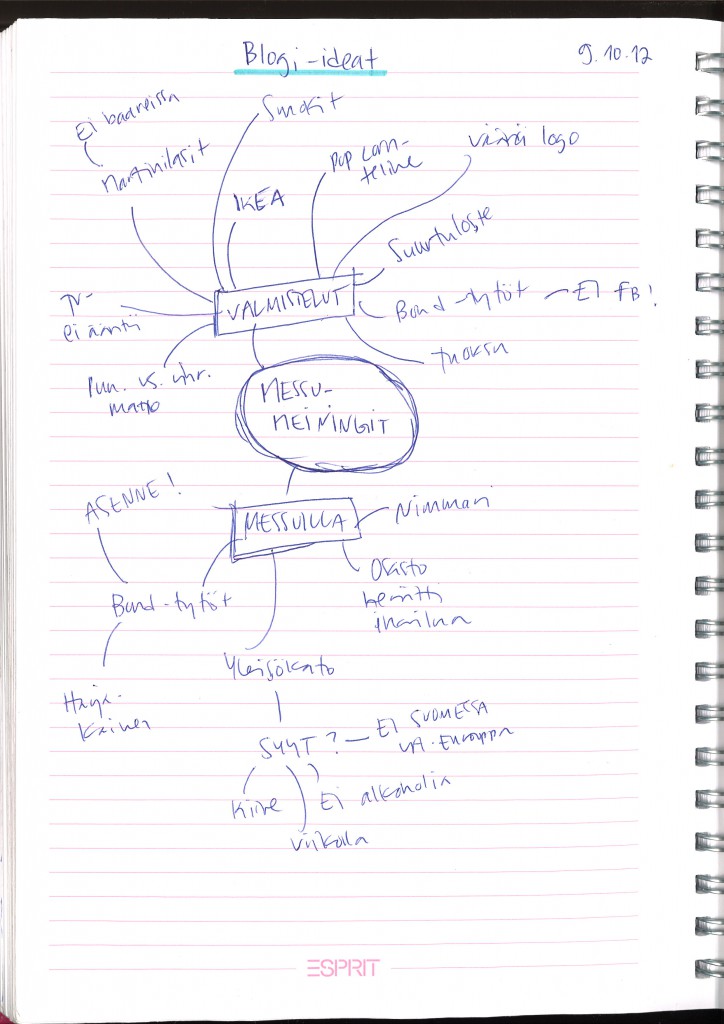 Blogi-ideat
9.10.12
Ei baareissa
Martinilasit
Smokit
IKEA
Pop corn-
teline
väärä logo
Suurtuloste
Bond-tytöt – EI FB!
tuoksu
TV-
ei ääntä
Pun. vs. vihr.
matto
VALMISTELUT
MESSU-
MEININGIT
MESSUILLA
ASENNE!
Bond-tytöt
Nimmari
Osasto
herätti
ihailua
Yleisökato
SYYT? – EI SUOMESSA
vA. Eurooppa
Kiire
Ei alkoholia
ESPRIT